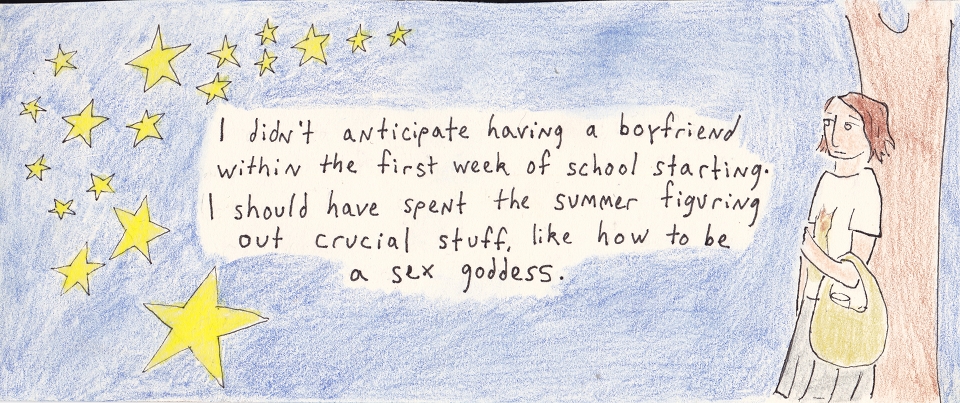 I didn't anticipate having a boyfriend
within the first week of school starting.
I should have spent the summer figuring
out crucial stuff, like how to be
a sex goddess.